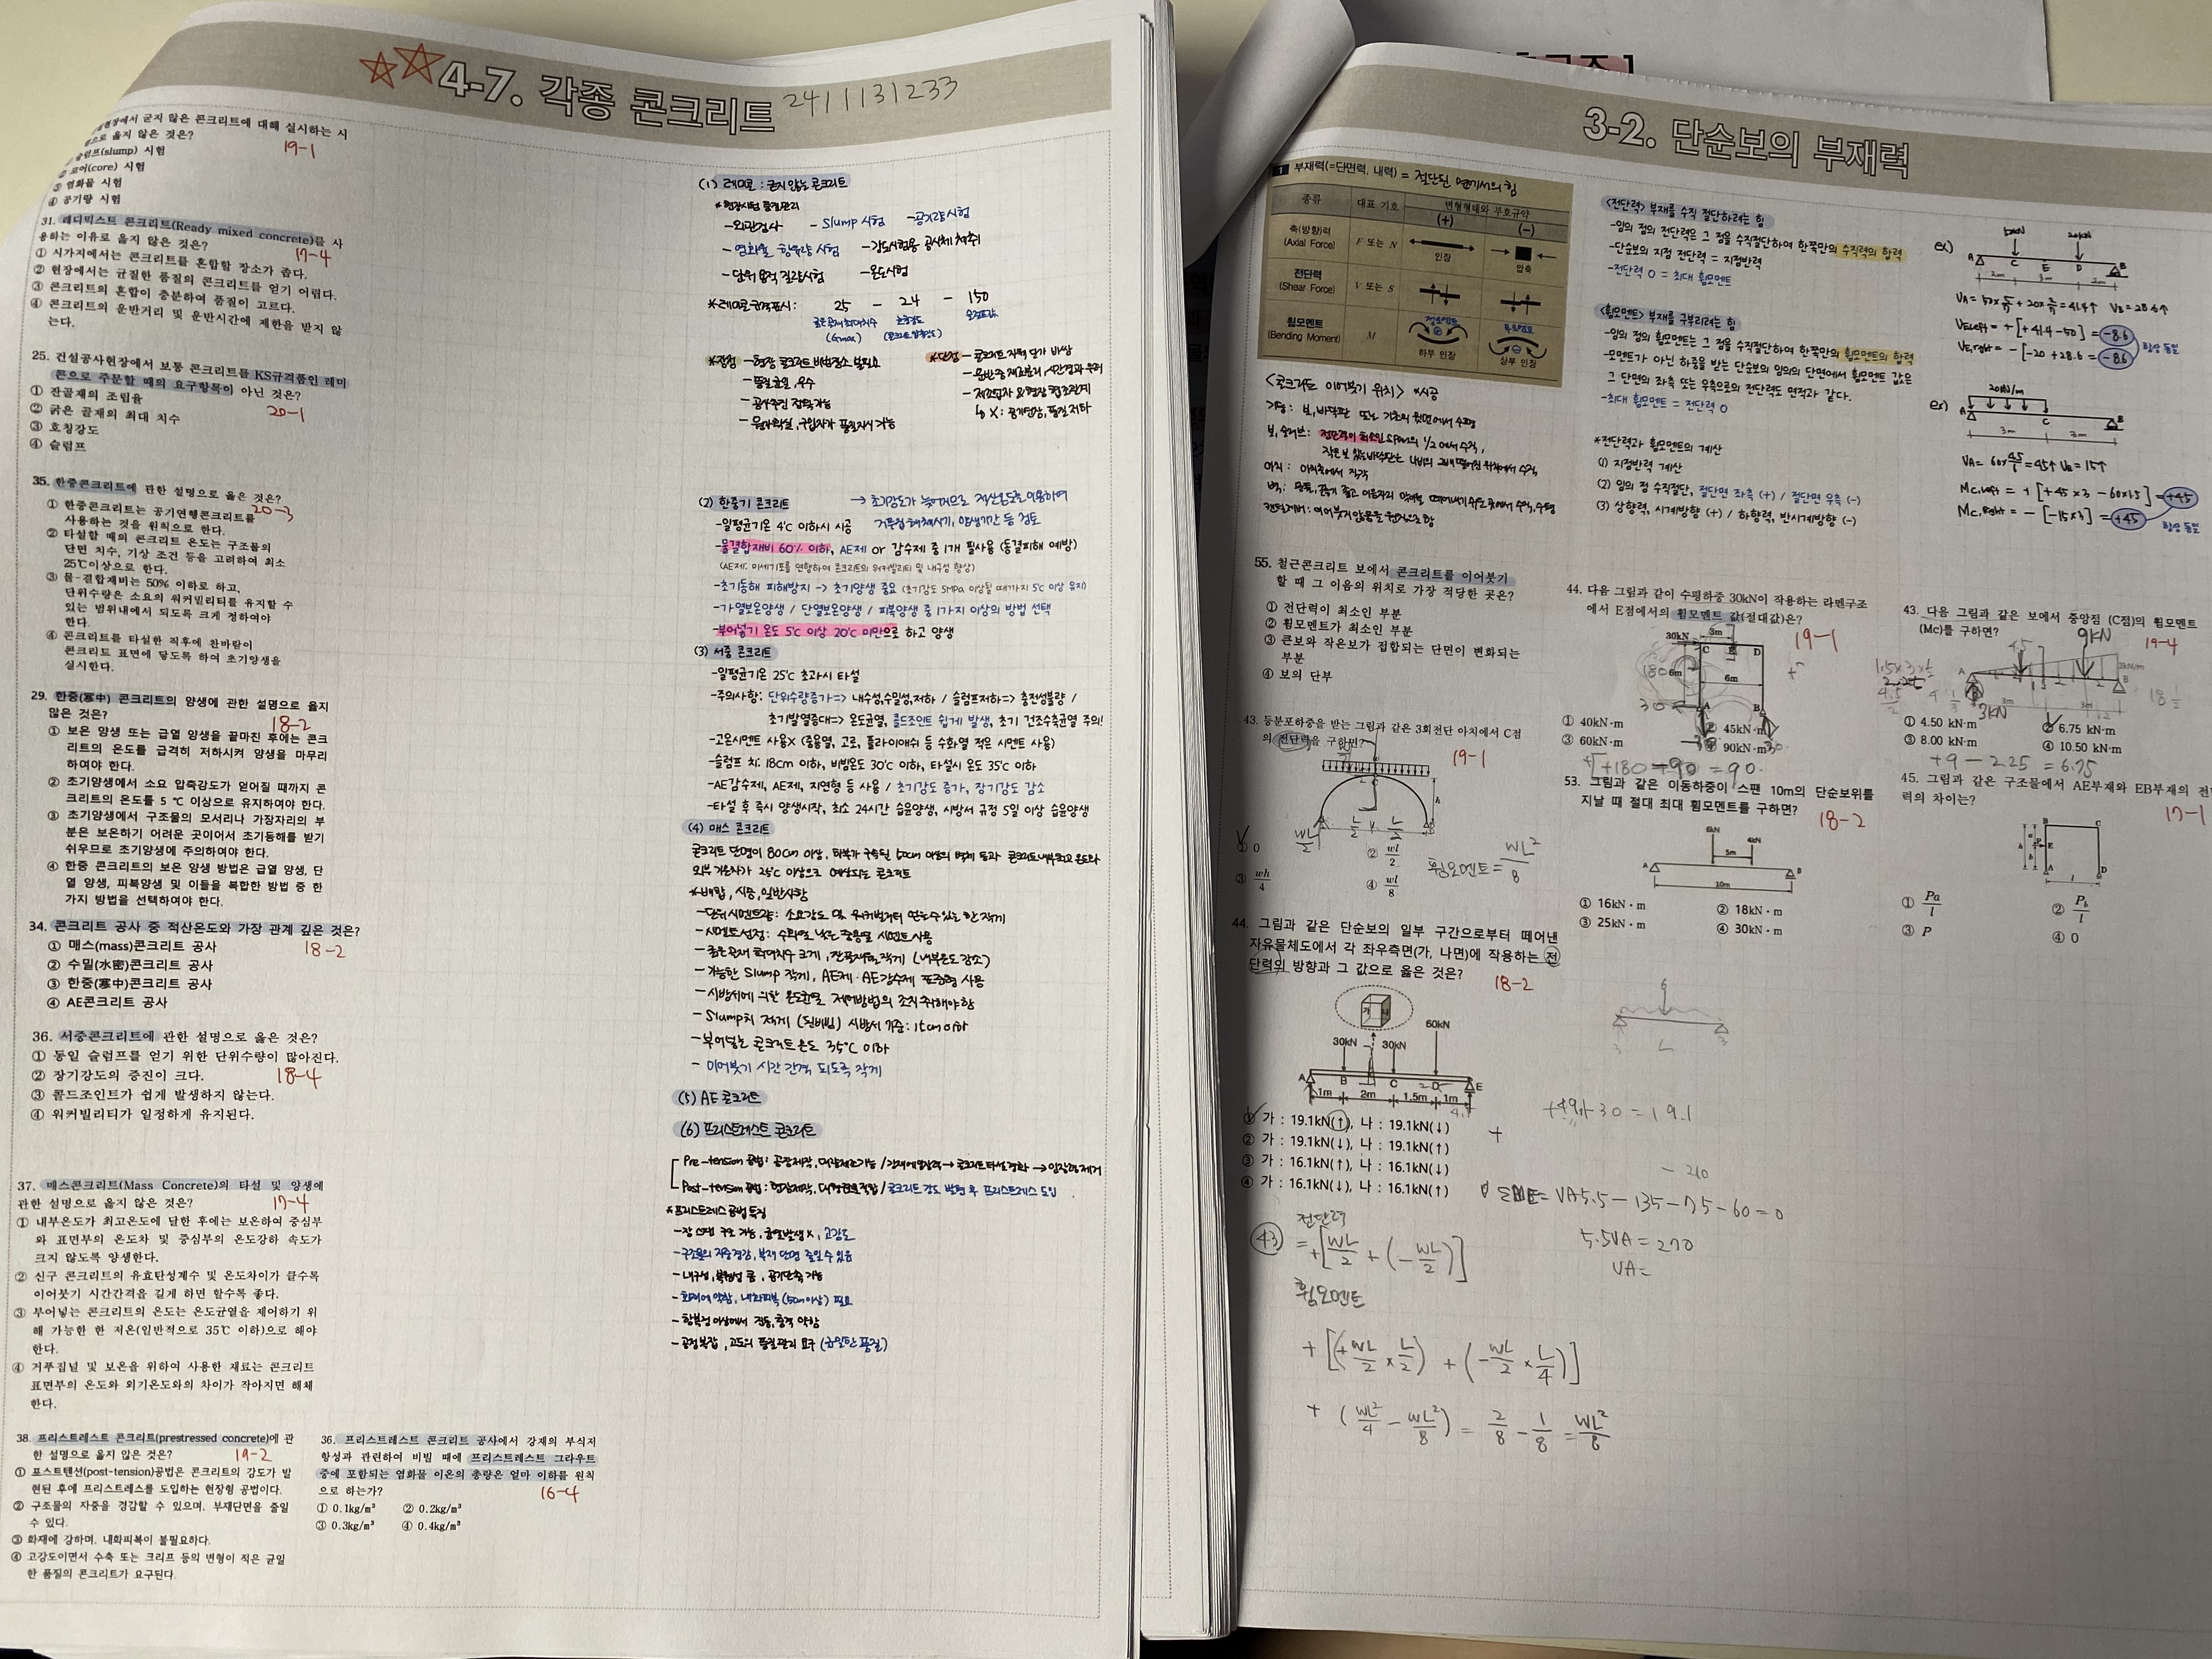 4-7. 각종 콘크리트
2411131233
현장에서 굳지 않은 콘크리트에 대해 실시하는 시
으로 옳지 않은 것은?
19-1
슬럼프(slump) 시험
② 코어(core) 시험
③ 염화물 시험
④ 공기량 시험
31. 레디믹스트 콘크리트(Ready mixed concrete)를 사
용하는 이유로 옳지 않은 것은?
17-4
① 시가지에서는 콘크리트를 혼합할 장소가 좁다.
② 현장에서는 균질한 품질의 콘크리트를 얻기 어렵다.
③ 콘크리트의 혼합이 충분하여 품질이 고르다.
④ 콘크리트의 운반거리 및 운반시간에 제한을 받지 않
는다.
25. 건설공사현장에서 보통 콘크리트를 KS규격품인 레미
콘으로 주문할 때의 요구항목이 아닌 것은?
20-1
① 잔골재의 조립율
② 굵은 골재의 최대 치수
③ 호칭강도
④ 슬럼프
35. 한중콘크리트에 관한 설명으로 옳은 것은?
20-3
① 한중콘크리트는 공기연행콘크리트를
사용하는 것을 원칙으로 한다.
② 타설할 때의 콘크리트 온도는 구조물의
단면 치수, 기상 조건 등을 고려하여 최소
25℃이상으로 한다.
③ 물-결합재비는 50% 이하로 하고,
단위수량은 소요의 워커빌리티를 유지할 수
있는 범위내에서 되도록 크게 정하여야
한다.
④ 콘크리트를 타설한 직후에 찬바람이
콘크리트 표면에 닿도록 하여 초기양생을
실시한다.
29. 한중(寒中) 콘크리트의 양생에 관한 설명으로 옳지
않은 것은?
18-2
① 보온 양생 또는 급열 양생을 끝마친 후에는 콘크
리트의 온도를 급격히 저하시켜 양생을 마무리
하여야 한다.
② 초기양생에서 소요 압축강도가 얻어질 때까지 콘
크리트의 온도를 5 ℃ 이상으로 유지하여야 한다.
③ 초기양생에서 구조물의 모서리나 가장자리의 부
분은 보온하기 어려운 곳이어서 초기동해를 받기
쉬우므로 초기양생에 주의하여야 한다.
④ 한중 콘크리트의 보온 양생 방법은 급열 양생, 단
열 양생, 피복양생 및 이들을 복합한 방법 중 한
가지 방법을 선택하여야 한다.
34. 콘크리트 공사 중 적산온도와 가장 관계 깊은 것은?
18-2
① 매스(mass)콘크리트 공사
② 수밀(水密)콘크리트 공사
③ 한중(寒中)콘크리트 공사
④ AE콘크리트 공사
36. 서중콘크리트에 관한 설명으로 옳은 것은?
18-4
① 동일 슬럼프를 얻기 위한 단위수량이 많아진다.
② 장기강도의 증진이 크다.
③ 콜드조인트가 쉽게 발생하지 않는다.
④ 워커빌리티가 일정하게 유지된다.
37. 매스콘크리트(Mass Concrete)의 타설 및 양생에
관한 설명으로 옳지 않은 것은?
17-4
① 내부온도가 최고온도에 달한 후에는 보온하여 중심부
와 표면부의 온도차 및 중심부의 온도강하 속도가
크지 않도록 양생한다.
② 신구 콘크리트의 유효탄성계수 및 온도차이가 클수록
이어붓기 시간간격을 길게 하면 할수록 좋다.
③ 부어넣는 콘크리트의 온도는 온도균열을 제어하기 위
해 가능한 한 저온(일반적으로 35℃ 이하)으로 해야
한다.
④ 거푸집널 및 보온을 위하여 사용한 재료는 콘크리트
표면부의 온도와 외기온도와의 차이가 작아지면 해체
한다.
38. 프리스트레스트 콘크리트(prestressed concrete)에 관
한 설명으로 옳지 않은 것은?
19-2
① 포스트텐션(post-tension)공법은 콘크리트의 강도가 발
현된 후에 프리스트레스를 도입하는 현장형 공법이다.
② 구조물의 자중을 경감할 수 있으며, 부재단면을 줄일
수 있다.
③ 화재에 강하며, 내화피복이 불필요하다.
④ 고강도이면서 수축 또는 크리프 등의 변형이 적은 균일
한 품질의 콘크리트가 요구된다.
36. 프리스트레스트 콘크리트 공사에서 강재의 부식저
항성과 관련하여 비빌 때에 프리스트레스트 그라우트
중에 포함되는 염화물 이온의 총량은 얼마 이하를 원칙
으로 하는가?
16-4
① 0.1kg/m³ ② 0.2kg/m³
③ 0.3kg/m³ ④ 0.4kg/m³
(1) 레미콘 : 굳지 않는 콘크리트
*현장시험 품질관리
-외관검사 - Slump 시험 -공기량시험
-염화물 함유량 시험 -강도시험용 공시체 채취
-단위용적 질량시험 -온도시험
*레미콘 규격표시: 25 - 24 - 150
굵은골재 최대치수 호칭강도 슬럼프값
(Gmax)
*장점 -현장 콘크리트 비빔장소 불필요
-품질균일, 우수
-공사추진 정확 가능
*단점 -콘크리트 자체 단가 비쌈
(2) 한중기 콘크리트 → 초기강도가 늦어지므로 적산온도를 이용하여
거푸집 해체시기, 양생기간 등 검토
-일평균기온 4℃ 이하시 시공
-물결합재비 60% 이하, AE제 or 감수제 중 1개 필사용 (동결피해 예방)
(AE제: 미세기포를 연행하여 콘크리트의 워커빌리티 및 내구성 향상)
-초기동해 피해방지 → 초기양생 중요 (초기강도 5MPa 이상될 때까지 5℃ 이상 유지)
-가열보온양생 / 단열보온양생 / 피복양생 중 1가지 이상의 방법 선택
-부어넣기 온도 5℃ 이상 20℃ 미만으로 하고 양생
(3) 서중 콘크리트
-일평균기온 25℃ 초과시 타설
-주의사항: 단위수량증가=> 내수성,수밀성,저하 / 슬럼프저하=> 충전성불량 /
초기발열증대=> 온도균열, 콜드조인트 쉽게 발생, 초기 건조수축균열 주의!
-고온시멘트 사용X (중용열, 고로, 플라이애쉬 등 수화열 적은 시멘트 사용)
-슬럼프 치: 18cm 이하, 비빔온도 30℃ 이하, 타설시 온도 35℃ 이하
-AE감수제, AE제, 지연형 등 사용 / 초기강도 증가, 장기강도 감소
-타설 후 즉시 양생시작, 최소 24시간 습윤양생, 시방서 규정 5일 이상 습윤양생
(4) 매스 콘크리트
콘크리트 단면이 80cm 이상, 하부가 구속된 50cm 이상의 벽체 등과 콘크리트 내부최고 온도와
외부 기온차가 25℃ 이상으로 예상되는 콘크리트
*배합, 시공, 일반사항
-단위시멘트량: 소요강도 및 워커빌리티 얻는 수 있는 한 적게
-시멘트선정: 수화열 낮은 중용열 시멘트 사용
-굵은골재 최대치수 크게, 잔골재율 작게 (내부온도 감소)
-가능한 Slump 작게, AE제·AE감수제 표준형 사용
-시방서에 의한 온도균열 제어방법의 조치 취해야함
-Slump치 적게 (된비빔) 시방서 기준: 15cm 이하
-부어넣는 콘크리트 온도 35℃ 이하
-이어붓기 시간 간격 되도록 작게
(5) AE 콘크리트
(6) 프리스트레스트 콘크리트
Pre-tension 공법: 공장제작, 대량제조가능 / 강재에 인장력 → 콘크리트 타설경화 → 인장력 제거
Post-tension 공법: 현장제작, 대형구조적합 / 콘크리트 강도 발현 후 프리스트레스 도입
*프리스트레스 공법 특징
-장 스팬 구조 가능, 균열발생 X, 고강도
-구조물의 자중경감, 부재 단면 줄일 수 있음
-내구성, 복원성 큼, 공기단축 가능
-화재에 약함, 내화피복 (5cm이상) 필요
-항복점 이상에서 진동, 충격 약함
-공정복잡, 고도의 품질관리 요구 (균일한 품질)
3-2. 단순보의 부재력
1 부재력(=단면력, 내력) = 절단된 면에서의 힘
종류 대표 기호 변형형태와 부호규약
(+) (-)
축(방향)력
(Axial Force) F 또는 N 인장 압축
전단력
(Shear Force) V 또는 S
휨모멘트
(Bending Moment) M 하부 인장 상부 인장
<콘크리트 이어붓기 위치> *시공
기둥: 보, 바닥판 또는 기초의 윗면에서 수평
보, 슬라브: 전단력이 최소인 span의 1/2에서 수직,
아치: 아치축에서 직각
캔틸레버: 이어붓지 않음을 원칙으로 함
<전단력> 부재를 수직 절단하려는 힘
-임의 점의 전단력은 그 점을 수직절단하여 한쪽만의 수직력의 합력
-단순보의 지점 전단력 = 지점반력
-전단력 0 = 최대 휨모멘트
<휨모멘트> 부재를 구부리려는 힘
-임의 점의 휨모멘트는 그 점을 수직절단하여 한쪽만의 휨모멘트의 합력
-모멘트가 아닌 하중을 받는 단순보의 임의의 단면에서 휨모멘트 값은
그 단면의 좌측 또는 우측으로의 전단력도 면적과 같다.
-최대 휨모멘트 = 전단력 0
*전단력과 휨모멘트의 계산
(1) 지점반력 계산
(2) 임의 점 수직절단, 절단면 좌측 (+) / 절단면 우측 (-)
(3) 상향력, 시계방향 (+) / 하향력, 반시계방향 (-)
ex) 50kN 20kN
A C E D B
2m 3m 2m
VA = 50×5/7 + 20×2/7 = 41.4↑ VB = 28.6↑
VE,left = + [+41.4-50] = -8.6
VE,right = - [-20+28.6] = -8.6
항상 동일
ex) 20kN/m
A C B
3m 3m
VA = 60×4.5/6 = 45↑ VB = 15↑
Mc,left = + [+45×3 - 60×1.5] = +45
Mc,right = - [-15×3] = +45
항상 동일
55. 철근콘크리트 보에서 콘크리트를 이어붓기
할 때 그 이음의 위치로 가장 적당한 곳은?
① 전단력이 최소인 부분
② 휨모멘트가 최소인 부분
③ 큰보와 작은보가 접합되는 단면이 변화되는
부분
④ 보의 단부
43. 등분포하중을 받는 그림과 같은 3회전단 아치에서 C점
의 전단력을 구하면?
19-1
① 0 ② wl/2
③ wh/4 ④ wl/8
휨모멘트 = WL²/8
44. 그림과 같은 단순보의 일부 구간으로부터 떼어낸
자유물체도에서 각 좌우측면(가, 나면)에 작용하는 전
단력의 방향과 그 값으로 옳은 것은?
18-2
30kN 30kN 60kN
A B C D E
1m 2m 1.5m 1m
① 가 : 19.1kN(↑), 나 : 19.1kN(↓)
② 가 : 19.1kN(↓), 나 : 19.1kN(↑)
③ 가 : 16.1kN(↑), 나 : 16.1kN(↓)
④ 가 : 16.1kN(↓), 나 : 16.1kN(↑)
+49.1-30 = 19.1
VA5.5 - 135 - 75 - 60 = 0
5.5VA = 270
VA =
43 전단력
= +[WL/2 + (-WL/2)]
휨모멘트
+ [(+WL/2 × L/2) + (-WL/2 × L/4)]
+ (WL²/4 - WL²/8) = 2/8 - 1/8 = WL²/8
44. 다음 그림과 같이 수평하중 30kN이 작용하는 라멘구조
에서 E점에서의 휨모멘트 값(절대값)은?
19-1
30kN 3m
C E D
6m 6m
A B
① 40kN·m ② 45kN·m
③ 60kN·m ④ 90kN·m
+180-90 = 90
53. 그림과 같은 이동하중이 스팬 10m의 단순보위를
지날 때 절대 최대 휨모멘트를 구하면?
18-2
6kN 4kN
5m
A B
10m
① 16kN·m ② 18kN·m
③ 25kN·m ④ 30kN·m
43. 다음 그림과 같은 보에서 중앙점 (C점)의 휨모멘트
(Mc)를 구하면?
19-4
9kN
3kN/m
3kN
① 4.50 kN·m ② 6.75 kN·m
③ 8.00 kN·m ④ 10.50 kN·m
+9 - 2.25 = 6.75
45. 그림과 같은 구조물에서 AE부재와 EB부재의 전
력의 차이는?
17-1
① Pa/l ② Pb/l
③ P ④ 0